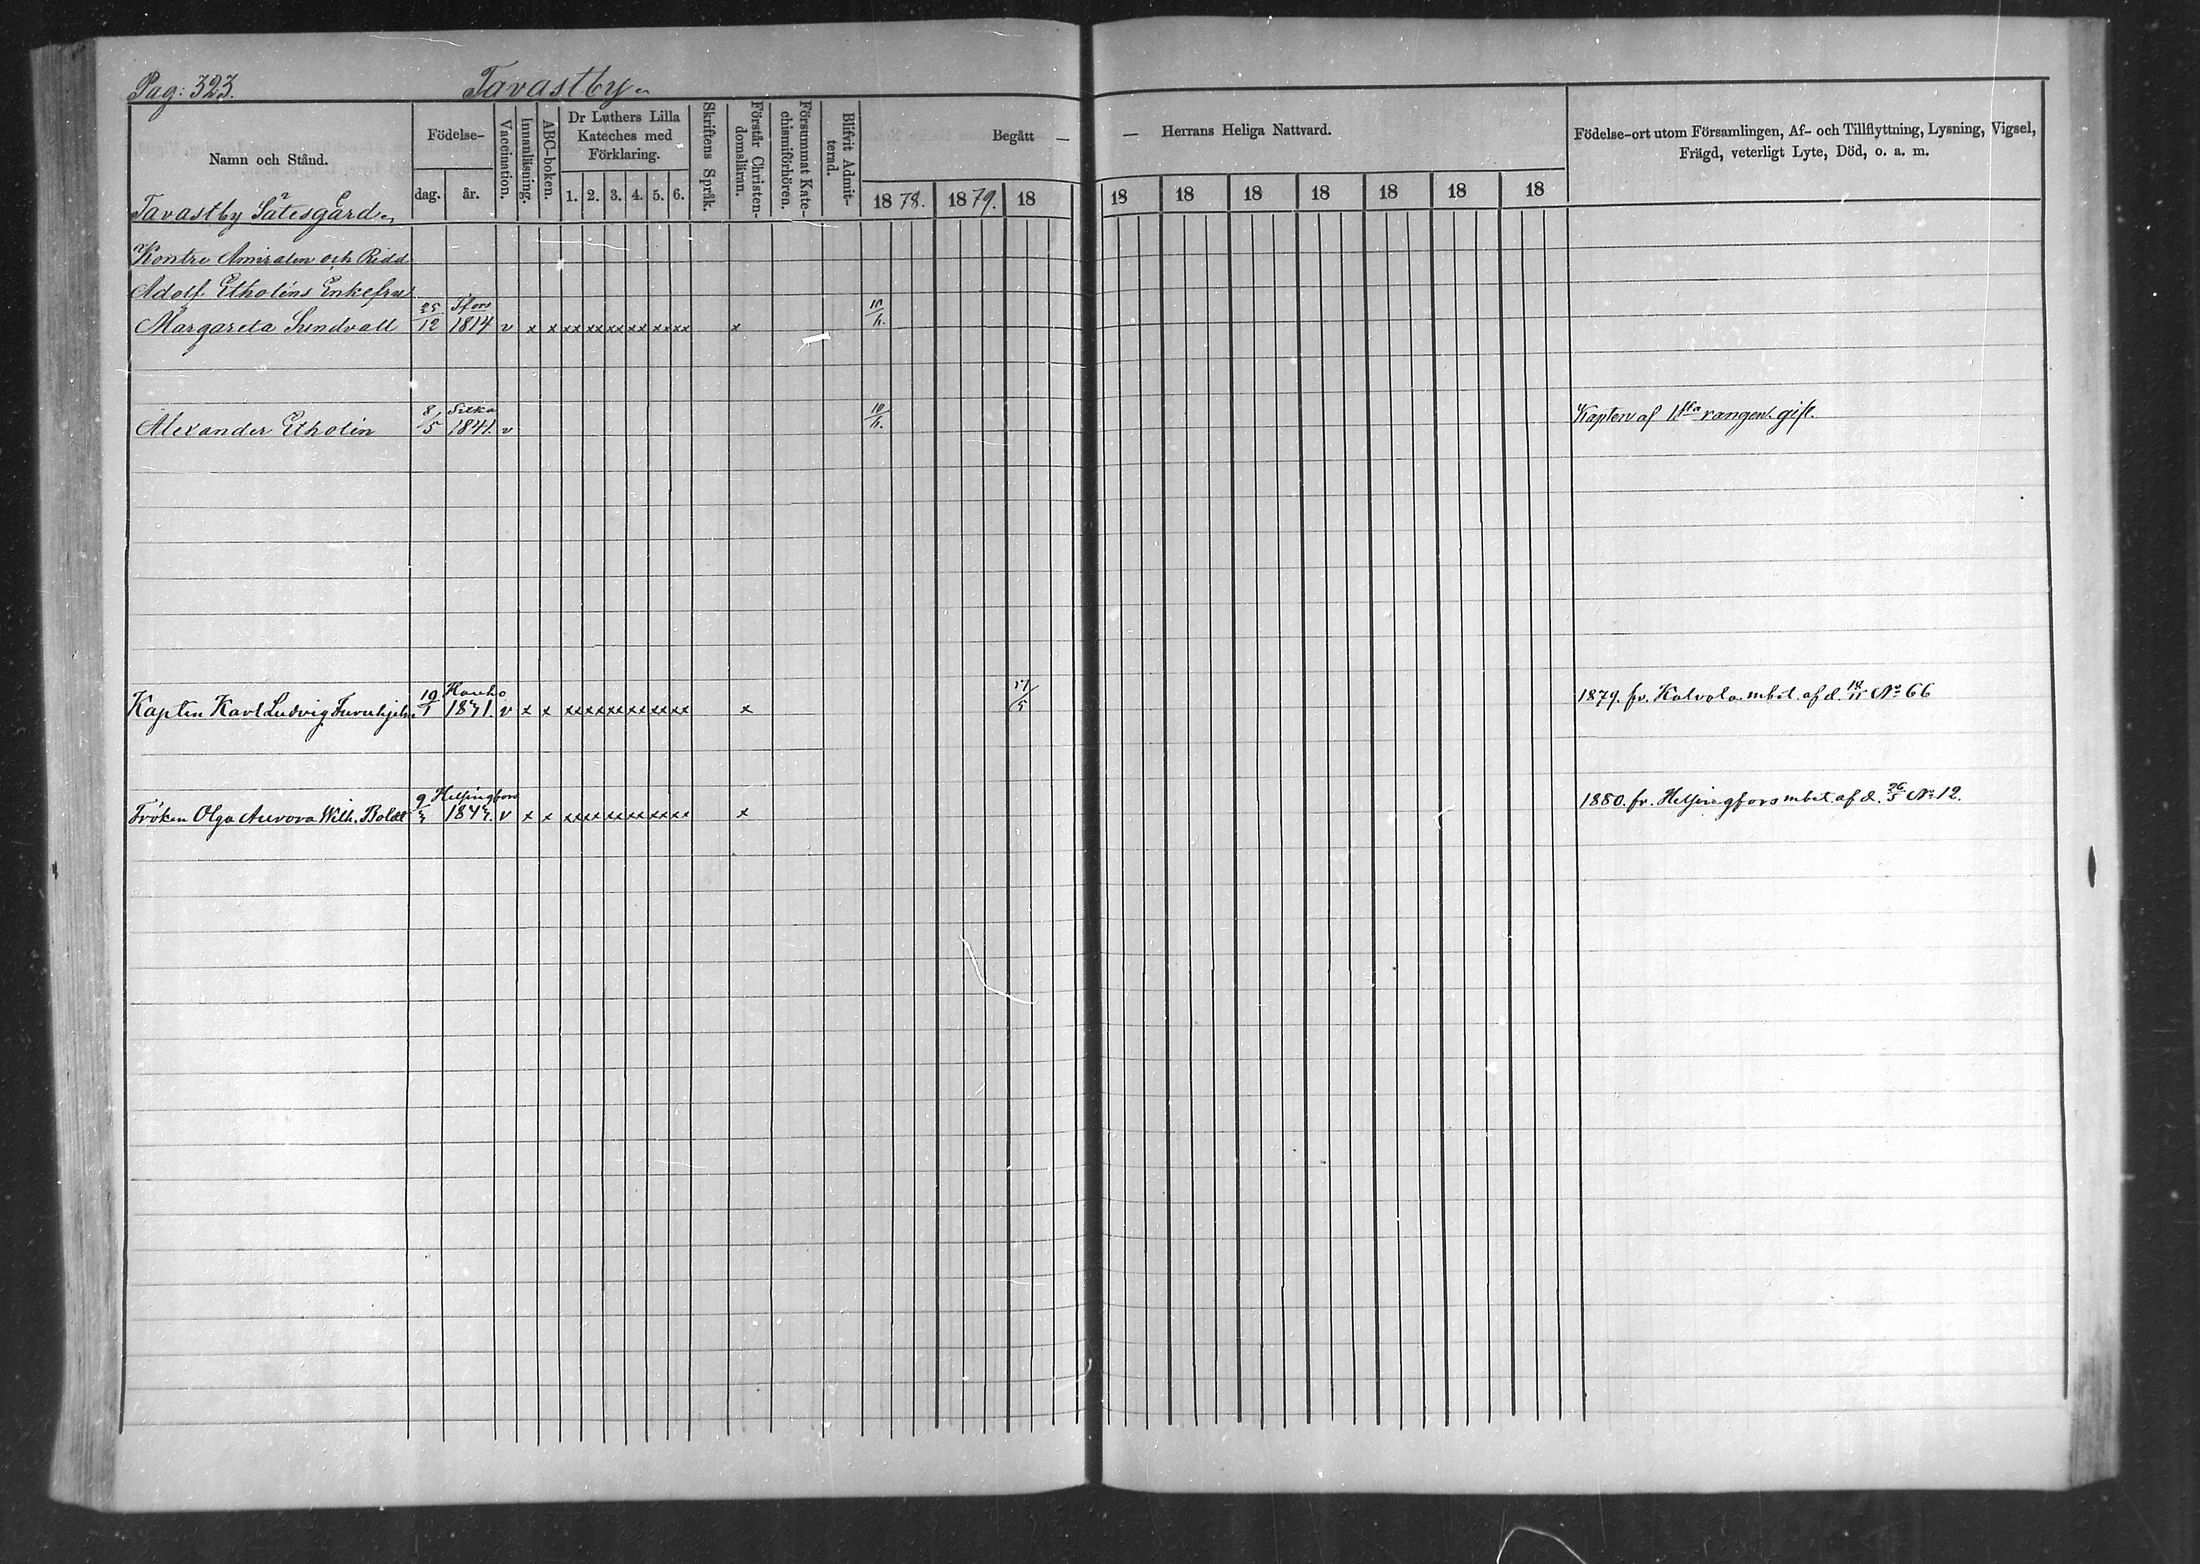 Pag: 323. Tavastby
Namn och Stånd.
Födelse-
dag. år.
Vaccination.
Innanläsning.
ABC-boken.
Dr Luthers Lilla
Kateches med
Förklaring.
1. 2. 3. 4. 5. 6.
Skriftens Språk.
Förstår Christen-
domsläran.
Försummat Kate-
chismiförhören.
Blifvit Admit-
terad.
Begått — — Herrans Heliga Nattvard.
1878. 1879. 18 18 18 18 18 18 18 18
Födelse-ort utom Församlingen, Af- och Tillflyttning, Lysning, Vigsel,
Frägd, veterligt Lyte, Död, o. a. m.
Tavastby Sätesgård
Kontre Amiralen och Ridd
Adolf Etholéns Enkefru
25 Hfors
Margareta Sundvall 12 1814 v x x xx xx xx xx xx xx x
8 Sitka
Alexander Etholén 5 1841. v Kapten af 1sta rangen. gift.
19 Hauho
Kapten Karl Ludvig Furuhjelm 1 v x x xx xx xx xx xx xx x 1879. fr. Kalvola mbet. af d. No 66
9 Helsingfors
Fröken Olga Aurora Wilh. Boldt v x x xx xx xx xx xx xx x 1880. fr. Helsingfors mbet. af d. 26/5 No 12.